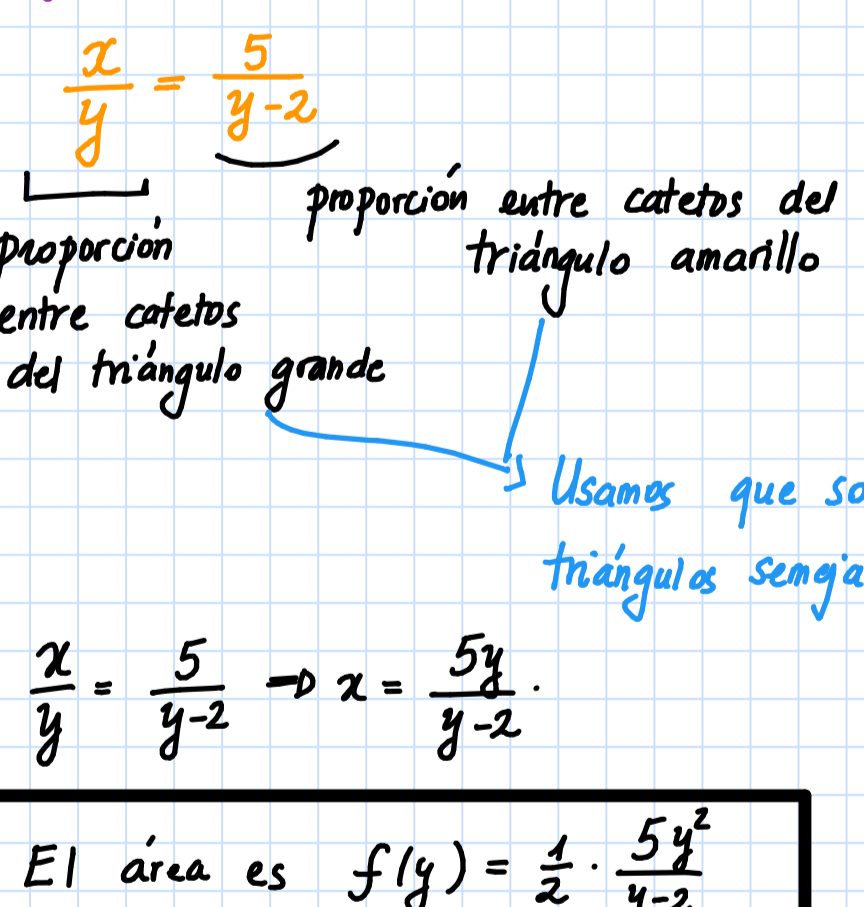 x/y = 5/(y-2)
proporción entre catetos del
triángulo amarillo
proporción
entre catetos
del triángulo grande
Usamos que so
triángulos semeja
x/y = 5/(y-2) → x = 5y/(y-2).
El área es f(y) = 1/2 · 5y²/(y-2)